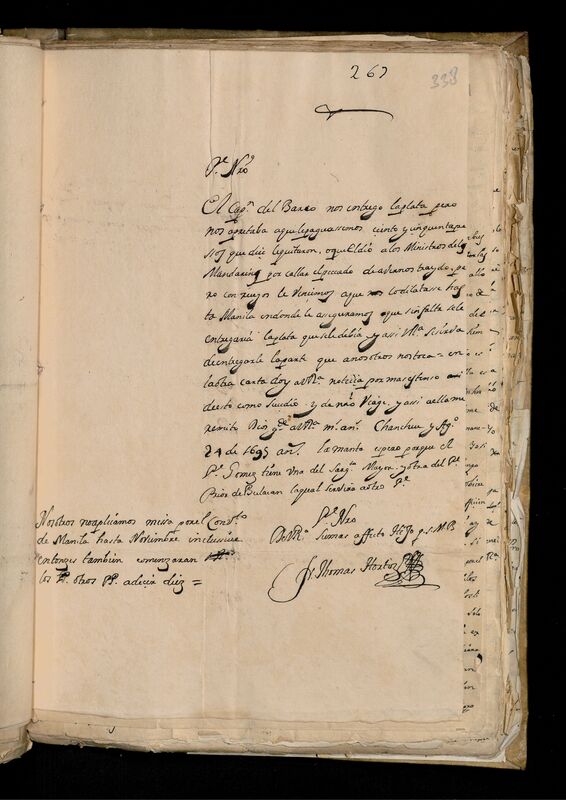 267
338
Pe. Nro
El Capn. del Barco nos entrego la plata pero
nos apretaba aque le pagassemos ciento y cinquenta pe
sos que dize le quitaron, o que el dio a los Ministros del
Mandarin por callar el peccado de avernos traydo, pe
ro con ruegos le vencimos aque nos lo dilatasse has
ta Manila en donde le aseguramos que sin falta se le
entregaria la plata que se le debia, y assi VRa. se sirva
de entregarle la parte que a nosotros nos toca = en
la otra carta doy a VRa. noticia por mas extenso
de esto como sucedio y de nro. Viage, y assi a ella me
remito Dios gde. a VRa. ms. ans. Chancheu y Ago.
24 de 1695 ans. la manta espero porque el
Pe. Gomez tiene una del Sargto. Mayor, y otra del Pe.
Prior de Bulacan la qual servira a otro Pe.
Pe. Nro
De VRa. su mas affecto Hijo q. s. M. B.
Fr. Thomas Horto
Nosotros no aplicamos missa por el Convto.
de Manila hasta Noviembre inclusive
entonzes tambien comenzaran
los Ps. otros PP. a dezir diez =